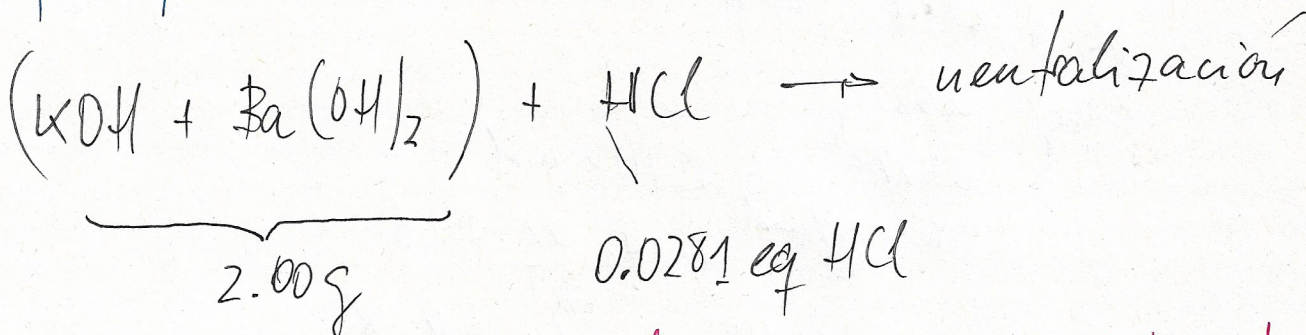 (KOH + Ba(OH)2) + HCl → neutralización
2.00g 0.0281 eq HCl